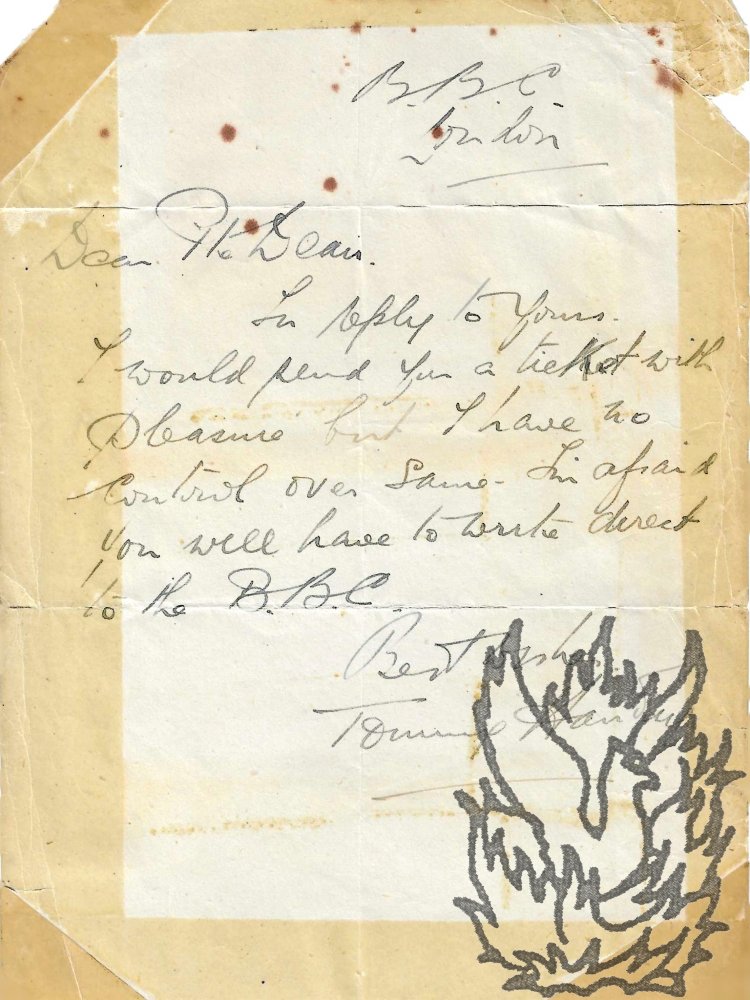 B.B.C
London
Dear Pte Dean.
In reply to yours.
I would send you a ticket with
pleasure but I have no
control over same. I'm afraid
you will have to write direct
to the B.B.C.
Best wishes
Tommy